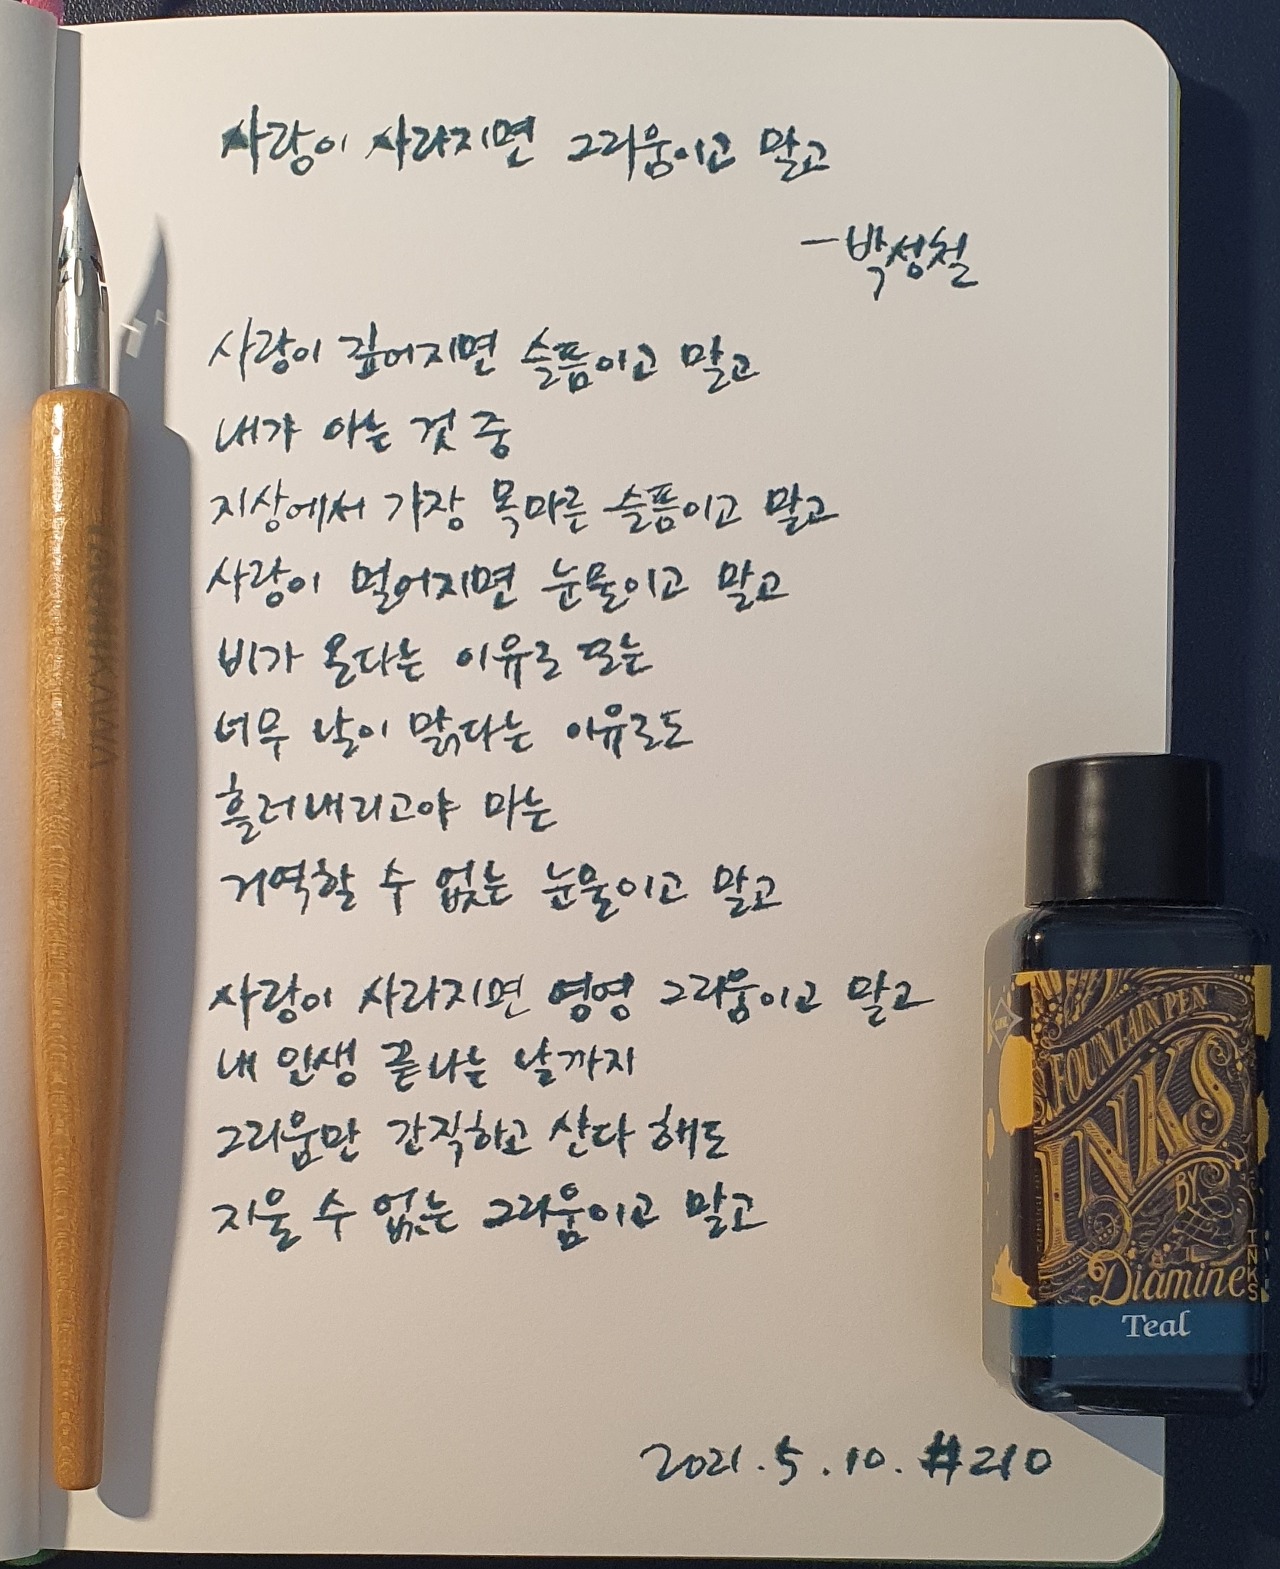 사랑이 사라지면 그리움이고 말고
- 박성철
사랑이 깊어지면 슬픔이고 말고
내가 아는 것 중
지상에서 가장 목마른 슬픔이고 말고
사랑이 멀어지면 눈물이고 말고
비가 온다는 이유로 또는
너무 날이 맑다는 이유로도
흘러내리고야 마는
거역할 수 없는 눈물이고 말고
사랑이 사라지면 영영 그리움이고 말고
내 인생 끝나는 날까지
그리움만 간직하고 산다 해도
지울 수 없는 그리움이고 말고
2021.5.10. #210
TACHIKAWA
FOUNTAIN PEN
INKS
BY
Diamine
INKS
Teal